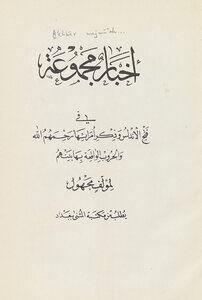 Akhbār majmūʿa...
أخبار مجموعة
في
فتح الأندلس وذكر أمرائها رحمهم الله
والحروب الواقعة بها بينهم
لمؤلف مجهول
يطلب من مكتبة المثنى ببغداد